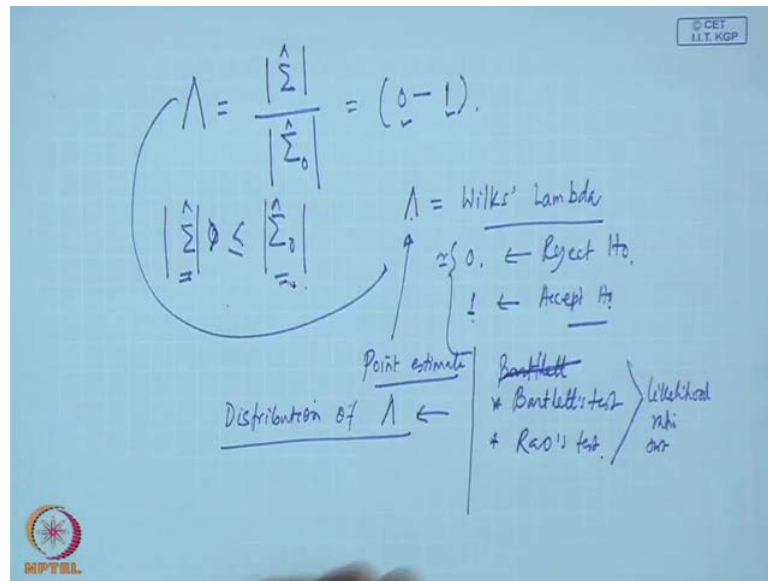 © CET
I.I.T. KGP
Λ = |Σ̂| / |Σ̂₀| = (0 – 1).
|Σ̂| ≤ |Σ̂₀|
Λ = Wilks' Lambda
≈ { 0. ← Reject H₀.
1 ← Accept H₀
Point estimate
Distribution of Λ ←
Bartlett
* Bartlett's test
* Rao's test.
likelihood
ratio
NPTEL